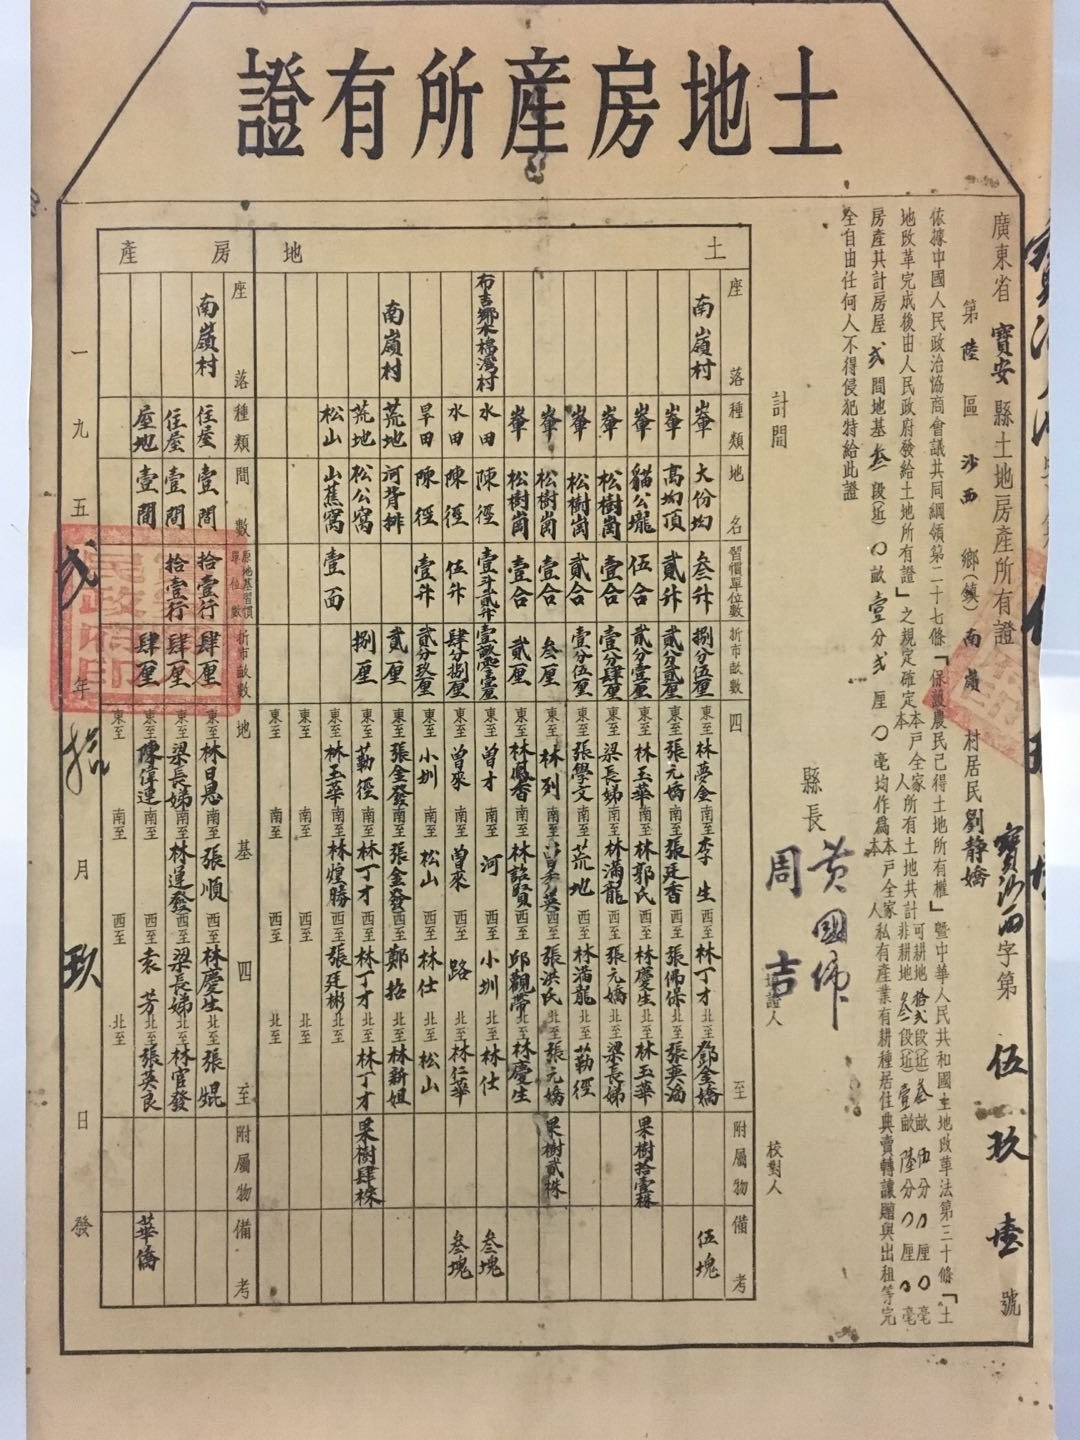 土地房產所有證
廣東省寶安縣土地房產所有證 寶沙西字第伍玖壹號
第陸區沙西鄉(鎮)南嶺村居民劉靜嬌
依據中國人民政治協商會議共同綱領第二十七條「保護農民已得土地所有權」暨中華人民共和國土地改革法第三十條「土
地改革完成後由人民政府發給土地所有證」之規定確定本戶全家本人所有土地共計可耕地拾貳段近叁畝伍分〇厘〇毫非耕地叁段近壹畝陸分〇厘〇毫
房產共計房屋貳間地基叁段近〇畝壹分貳厘〇毫均作為本戶全家本人私有產業有耕種居住典賣轉讓贈與出租等完
全自由任何人不得侵犯特給此證
計開
縣長 黃國偉
周吉
校對人
土地
座落 種類 地名 習慣單位數 折市畝數 四至 附屬物 備考
南嶺村 崋 大份坳 叁升 捌分伍厘 東至林夢金 南至李生 西至林丁才 北至鄧金嬌 伍塊
崋 高坳頂 貳升 貳分貳厘 東至張元嬌 南至張廷香 西至張佛保 北至張英海
崋 貓公壠 伍合 貳分壹厘 東至林玉華 南至林郭氏 西至林慶生 北至林玉華 果樹拾壹株
崋 松樹崗 壹合 壹分肆厘 東至梁長娣 南至林滿龍 西至張元嬌 北至梁長娣
崋 松樹崗 貳合 壹分伍厘 東至張學文 南至荒地 西至林滿龍 北至勤徑
崋 松樹崗 壹合 叁厘 東至林列 南至 西至張洪氏 北至張元嬌 果樹貳株
崋 松樹崗 壹合 貳厘 東至林鳳香 南至林詒賢 西至邱觀帶 北至林慶生
布吉鄉木棉灣村 水田 陳徑 壹斗貳升 壹畝零壹厘 東至曾才 南至河 西至小圳 北至林仕 叁塊
水田 陳徑 伍升 肆分捌厘 東至曾來 南至曾來 西至路 北至林仁華 叁塊
旱田 陳徑 壹升 貳分玖厘 東至小圳 南至松山 西至林仕 北至松山
南嶺村 荒地 河背排 貳厘 東至張金發 南至張金發 西至鄭招 北至林新姐
荒地 松公窩 捌厘 東至勤徑 南至林丁才 西至林丁才 北至林丁才 果樹肆株
松山 山蕉窩 壹面 東至林玉華 南至林煌勝 西至張廷彬 北至
東至 南至 西至 北至
東至 南至 西至 北至
房產
座落 種類 間數 原地基習慣單位數 折市畝數 地基四至 附屬物 備考
南嶺村 住屋 壹間 拾壹行 肆厘 東至林日恩 南至張順 西至林慶生 北至張焜
住屋 壹間 拾壹行 肆厘 東至梁長娣 南至林運發 西至梁長娣 北至林官發
屋地 壹間 肆厘 東至陳偉連 南至 西至袁芳 北至張英良 華僑
東至 南至 西至 北至
一九五貳年拾月玖日發